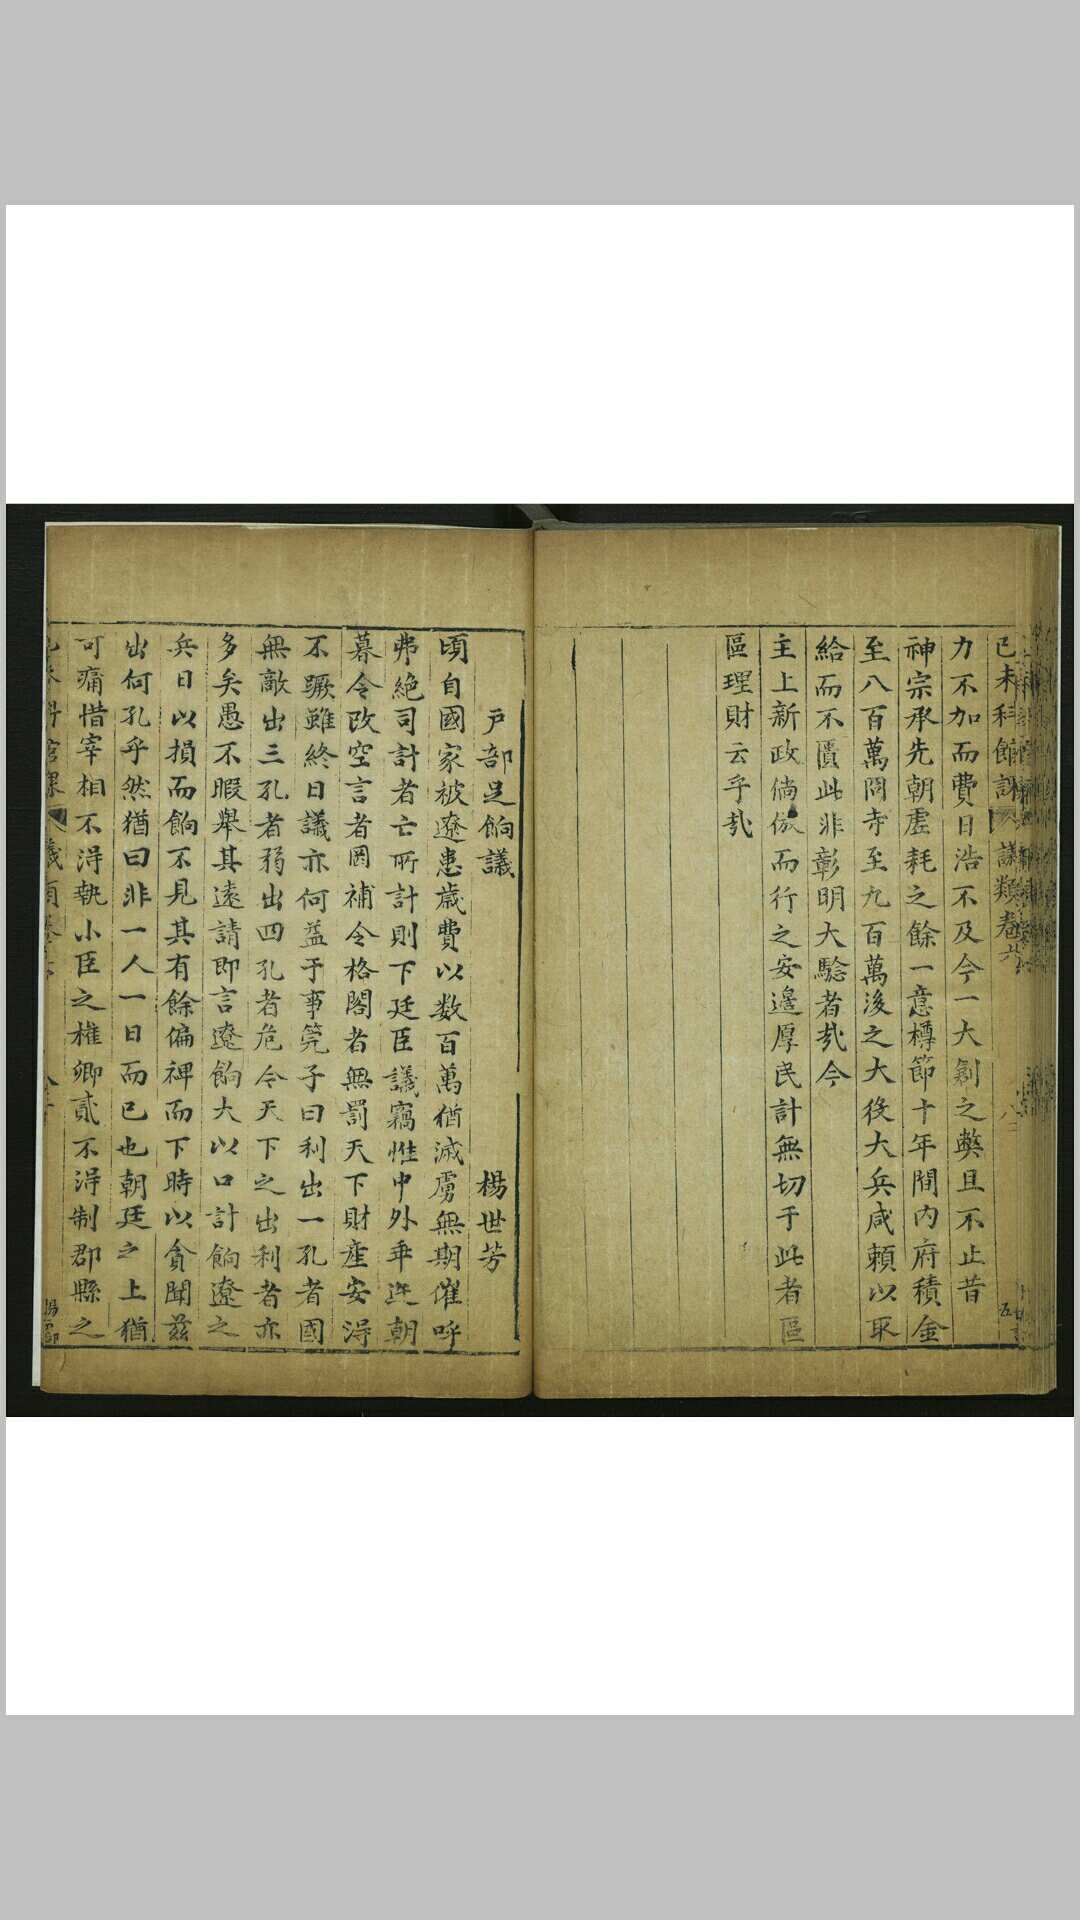 己未科館課 議類卷六
力不加而費日浩不及今一大剔之弊且不止昔
神宗承先朝虛耗之餘一意樽節十年間內府積金
至八百萬冏寺至九百萬後之大役大兵咸賴以取
給而不匱此非彰明大驗者㢤今
主上新政倘倣而行之安邊厚民計無切于此者區
區理財云乎㢤
戶部足餉議 楊世芳
頃自國家被遼患歲費以数百萬猶滅虜無期催呼
弗絕司計者亡所計則下廷臣議竊惟中外乖迕朝
暮令改空言者罔補令格閣者無罰天下財產安淂
不蹶雖終日議亦何益于事筦子曰利出一孔者國
無敵出三孔者弱出四孔者危今天下之出利者亦
多矣愚不暇舉其遠請即言遼餉大以口計餉遼之
兵日以損而餉不見其有餘偏裨而下時以貪聞茲
出何孔乎然猶曰非一人一日而已也朝廷之上猶
可痛惜宰相不淂執小臣之權卿貳不淂制郡縣之